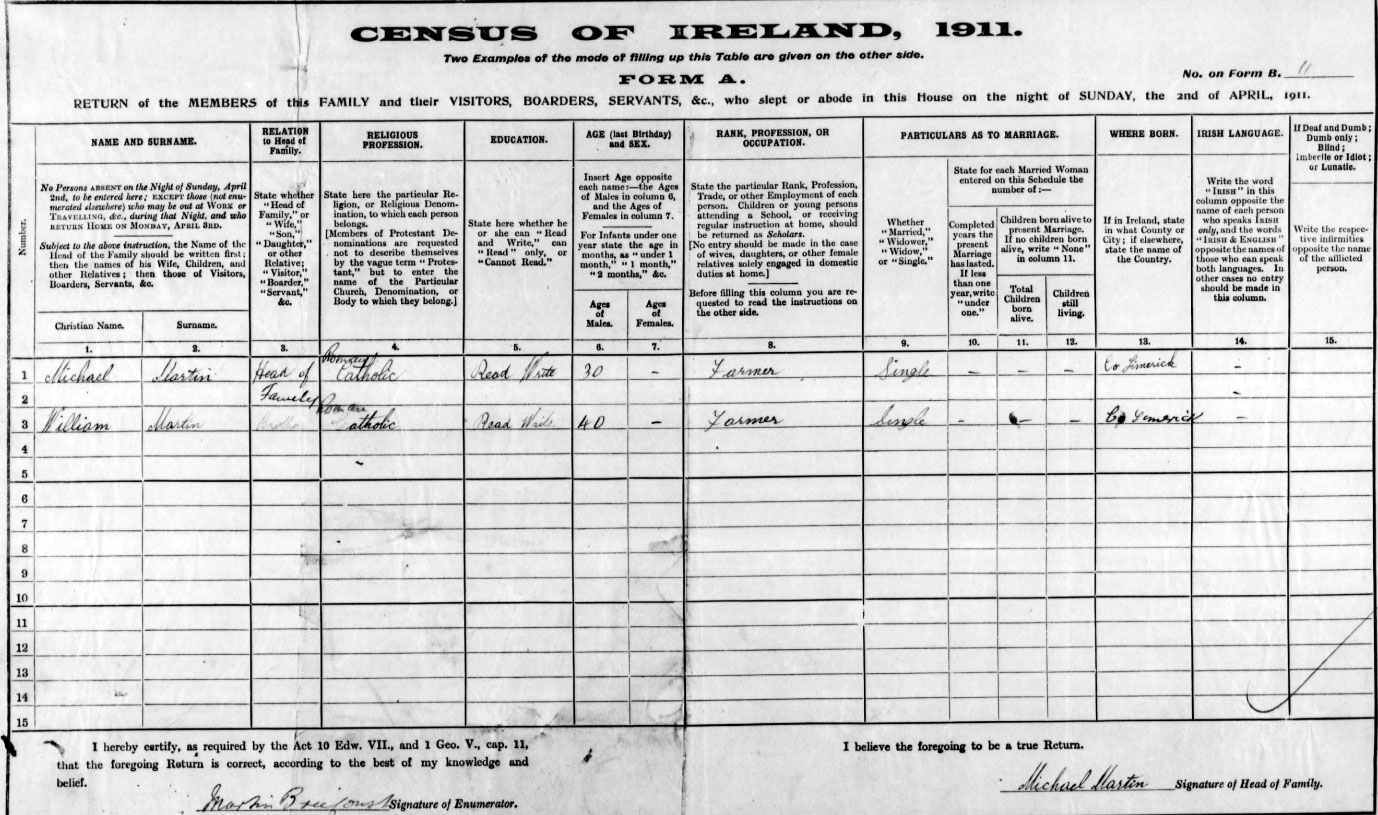 CENSUS OF IRELAND, 1911.
Two Examples of the mode of filling up this Table are given on the other side.
FORM A.
No. on Form B. 11
RETURN of the MEMBERS of this FAMILY and their VISITORS, BOARDERS, SERVANTS, &c., who slept or abode in this House on the night of SUNDAY, the 2nd of APRIL, 1911.
Number.
NAME AND SURNAME.
No Persons ABSENT on the Night of Sunday, April
2nd, to be entered here; EXCEPT those (not enu-
merated elsewhere) who may be out at WORK or
TRAVELLING, &c., during that Night, and who
RETURN HOME ON MONDAY, APRIL 3RD.
Subject to the above instruction, the Name of the
Head of the Family should be written first;
then the names of his Wife, Children, and
other Relatives; then those of Visitors,
Boarders, Servants, &c.
Christian Name.
Surname.
RELATION
to Head of
Family.
State whether
"Head of
Family," or
"Wife,"
"Son,"
"Daughter,"
or other
Relative;
"Visitor,"
"Boarder,"
"Servant,"
&c.
RELIGIOUS
PROFESSION.
State here the particular Re-
ligion, or Religious Denom-
ination, to which each person
belongs.
[Members of Protestant De-
nominations are requested
not to describe themselves
by the vague term "Protes-
tant," but to enter the
name of the Particular
Church, Denomination, or
Body to which they belong.]
EDUCATION.
State here whether he
or she can "Read
and Write," can
"Read" only, or
"Cannot Read."
AGE (last Birthday)
and SEX.
Insert Age opposite
each name:—the Ages
of Males in column 6,
and the Ages of
Females in column 7.
For Infants under one
year state the age in
months, as "under 1
month," "1 month,"
"2 months," &c.
Ages
of
Males.
Ages
of
Females.
RANK, PROFESSION, OR
OCCUPATION.
State the particular Rank, Profession,
Trade, or other Employment of each
person. Children or young persons
attending a School, or receiving
regular instruction at home, should
be returned as Scholars.
[No entry should be made in the case
of wives, daughters, or other female
relatives solely engaged in domestic
duties at home.]
Before filling this column you are re-
quested to read the instructions on
the other side.
PARTICULARS AS TO MARRIAGE.
Whether
"Married,"
"Widower,"
"Widow,"
or "Single."
State for each Married Woman
entered on this Schedule the
number of:—
Completed
years the
present
Marriage
has lasted.
If less
than one
year, write
"under
one."
Children born alive to
present Marriage.
If no children born
alive, write "None"
in column 11.
Total
Children
born
alive.
Children
still
living.
WHERE BORN.
If in Ireland, state
in what County or
City; if elsewhere,
state the name of
the Country.
IRISH LANGUAGE.
Write the word
"IRISH" in this
column opposite the
name of each person
who speaks IRISH
only, and the words
"IRISH & ENGLISH"
opposite the names of
those who can speak
both languages. In
other cases no entry
should be made in
this column.
If Deaf and Dumb;
Dumb only;
Blind;
Imbecile or Idiot;
or Lunatic.
Write the respec-
tive infirmities
opposite the name
of the afflicted
person.
1. 2. 3. 4. 5. 6. 7. 8. 9. 10. 11. 12. 13. 14. 15.
1 Michael Martin Head of Family Roman Catholic Read Write 30 – Farmer Single – – – Co Limerick –
2
3 William Martin Brother Roman Catholic Read Write 40 – Farmer Single – – – Co Limerick –
4
5
6
7
8
9
10
11
12
13
14
15
I hereby certify, as required by the Act 10 Edw. VII., and 1 Geo. V., cap. 11,
that the foregoing Return is correct, according to the best of my knowledge and
belief.
Martin Signature of Enumerator.
I believe the foregoing to be a true Return.
Michael Martin Signature of Head of Family.